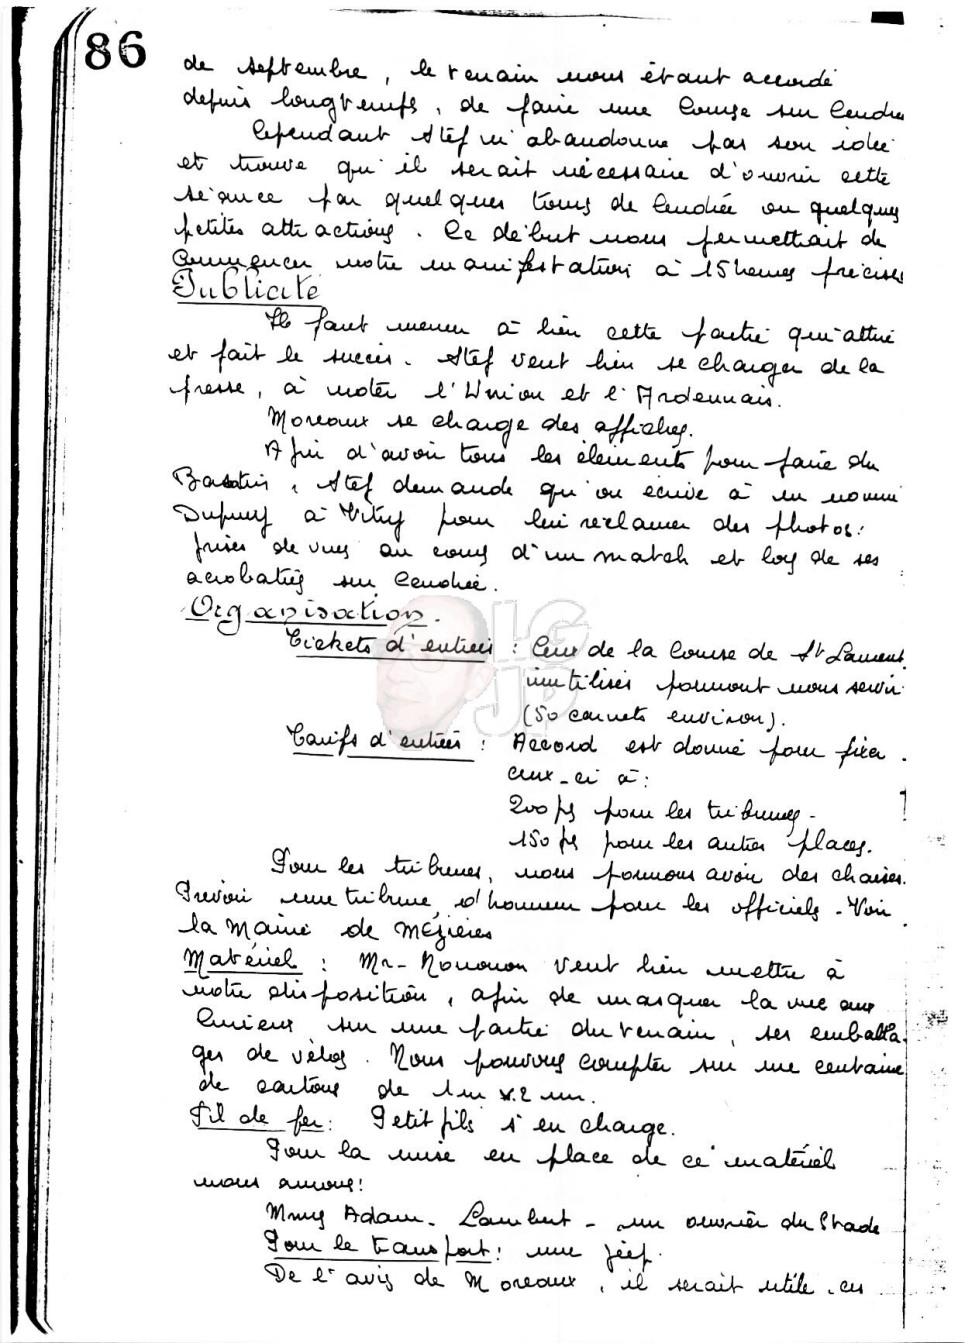 86
de septembre, le terrain nous étant accordé
depuis longtemps, de faire une course sur cendrée
Cependant Stef n'abandonne pas son idée
et trouve qu'il serait nécessaire d'ouvrir cette
séance par quelques tours de cendrée ou quelques
petites attractions. Ce début nous permettrait de
commencer notre manifestation à 15 heures précises
Publicité
Il faut mener à bien cette partie qui attire
et fait le succès. Stef veut bien se charger de la
presse, à noter l'Union et l'Ardennais.
Moreaux se charge des affiches.
Afin d'avoir tous les éléments pour faire du
Stef demande qu'on écrive à un nommé
Dupuy à Vitry pour lui réclamer des photos:
prises de vues au cours d'un match et lors de ses
acrobaties sur cendrée.
Organisation.
Tickets d'entrées : Ceux de la Course de St Laurent
inutilisés pourront nous servir
(50 carnets environ).
Tarifs d'entrées : Accord est donné pour fixer
ceux-ci à:
200 frs pour les tribunes.
150 frs pour les autres places.
Pour les tribunes, nous pourrons avoir des chaises.
Prévoir une tribune d'honneur pour les officiels - Voir
la Mairie de Mézières
Matériel : Mr - veut bien mettre à
notre disposition, afin de masquer la vue aux
curieux, sur une partie du terrain, ses emballa-
ges de vélos. Nous pouvons compter sur une centaine
de cartons de 1m x 2 m.
Fil de fer: Petitfils s'en charge.
Pour la mise en place de ce matériel
nous aurons:
Mrs Adam - Lambert - un ouvrier du Stade
Pour le transport: une jeep.
De l'avis de Moreaux, il serait utile, en
LG
JP